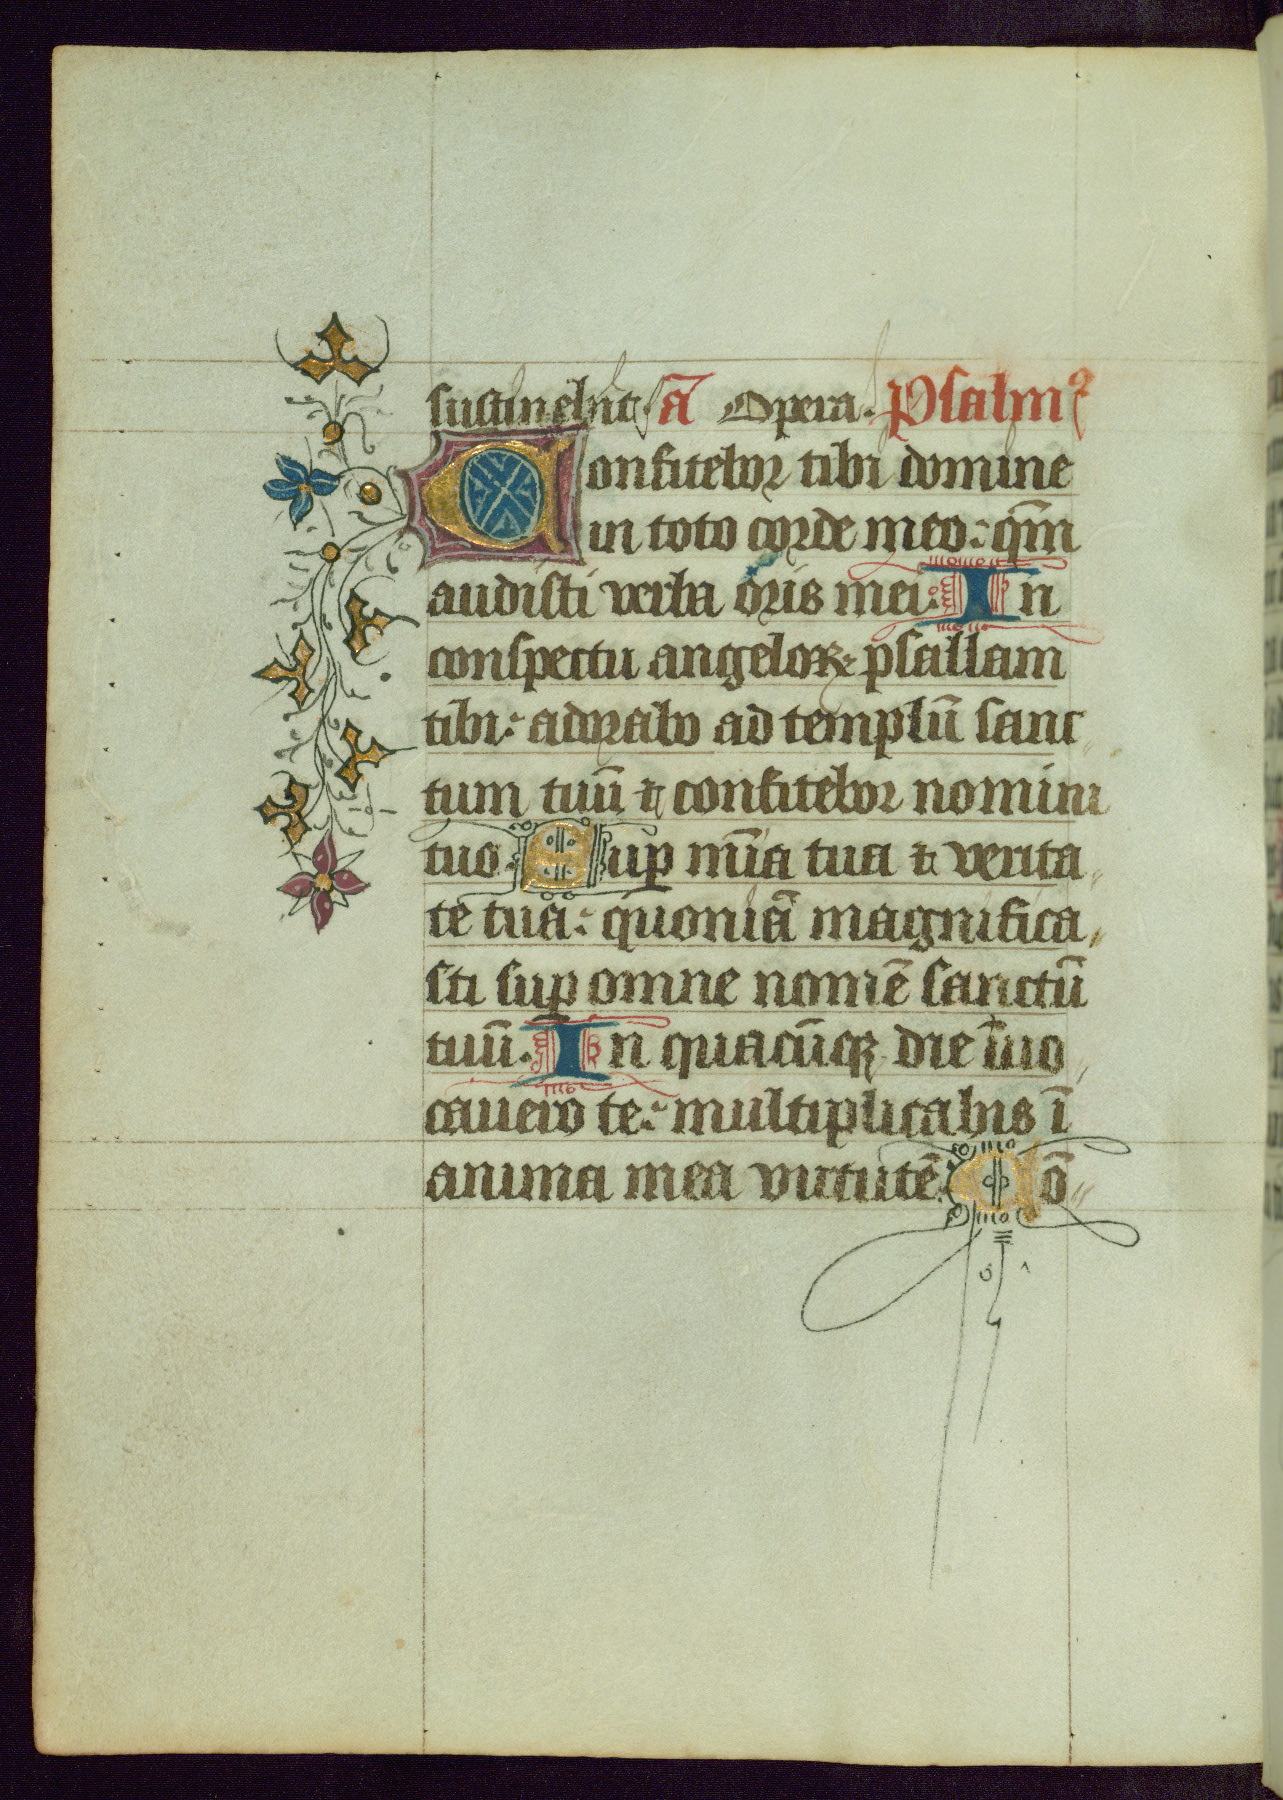 sustinebūt. ā Opera. Psalmꝰ
Confitebor tibi domine
in toto corde meo: qm̄
audisti verba oris mei. In
conspectu angeloꝝ psallam
tibi: adorabo ad templū sanc
tum tuū ⁊ confitebor nomini
tuo. Suꝑ mīa tua ⁊ verita
te tua: quoniā magnifica
sti suꝑ omne nomē sanctū
tuū. In quacūqꝫ die īuo
cavero te: multiplicabis ī
anima mea virtutē. Cō